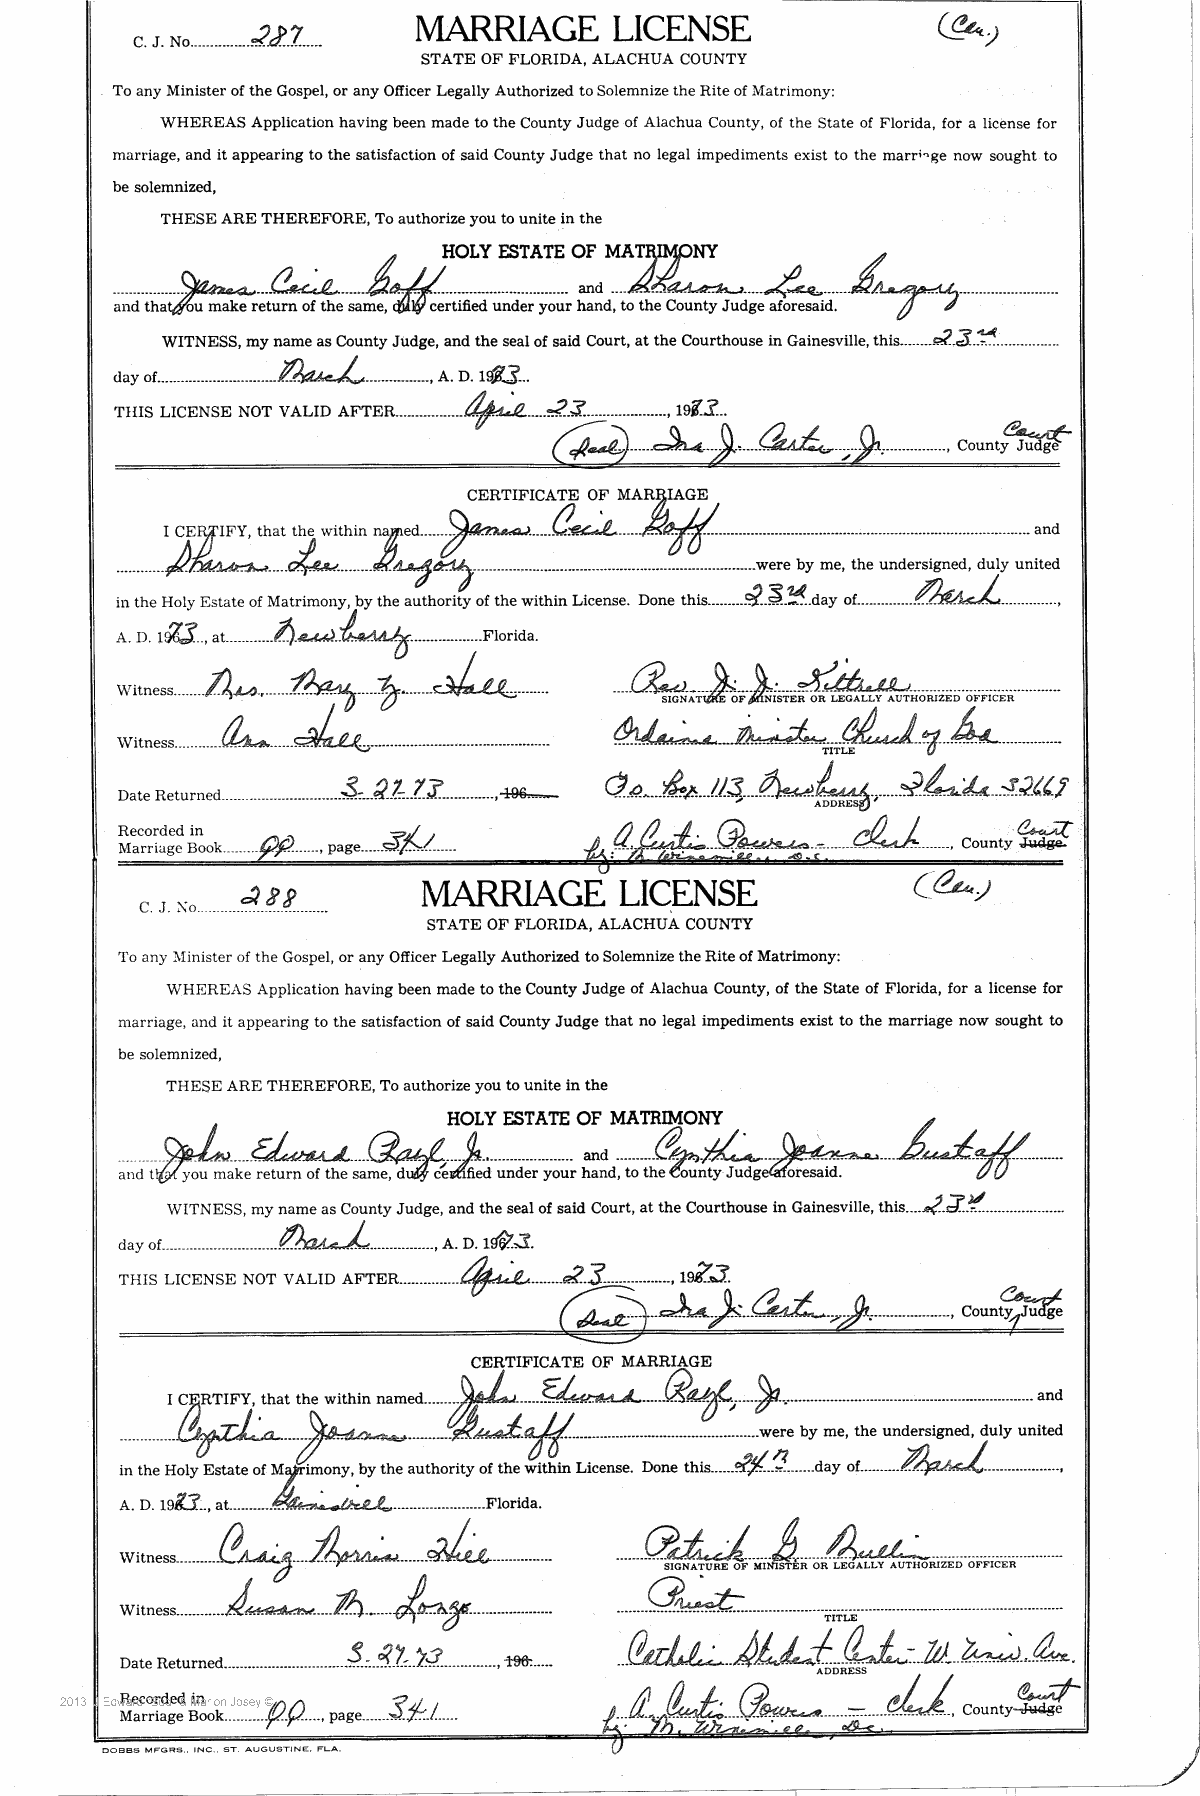 C. J. No. 287 MARRIAGE LICENSE (Cen.)
STATE OF FLORIDA, ALACHUA COUNTY
To any Minister of the Gospel, or any Officer Legally Authorized to Solemnize the Rite of Matrimony:
WHEREAS Application having been made to the County Judge of Alachua County, of the State of Florida, for a license for
marriage, and it appearing to the satisfaction of said County Judge that no legal impediments exist to the marriage now sought to
be solemnized,
THESE ARE THEREFORE, To authorize you to unite in the
HOLY ESTATE OF MATRIMONY
James Cecil Goff and Sharon Lee Gregory
and that you make return of the same, duly certified under your hand, to the County Judge aforesaid.
WITNESS, my name as County Judge, and the seal of said Court, at the Courthouse in Gainesville, this 23rd
day of March, A. D. 1973.
THIS LICENSE NOT VALID AFTER April 23, 1973.
(Seal) Ira J. Carter, Jr., County Court Judge
CERTIFICATE OF MARRIAGE
I CERTIFY, that the within named James Cecil Goff and
Sharon Lee Gregory were by me, the undersigned, duly united
in the Holy Estate of Matrimony, by the authority of the within License. Done this 23rd day of March,
A. D. 1973, at Newberry Florida.
Witness Mrs. Mary Z. Hall Rev J. J. Kittrell
SIGNATURE OF MINISTER OR LEGALLY AUTHORIZED OFFICER
Witness Ann Hall Ordains Minister Church of God
TITLE
Date Returned 3-27-73, 196 Po. Box 113, Newberry, Florida 32669
ADDRESS
Recorded in
Marriage Book QQ, page 341 A. Curtis Powers - Clerk, County Court Judge
by: M. Winemiller, D.C.
C. J. No. 288 MARRIAGE LICENSE (Cen.)
STATE OF FLORIDA, ALACHUA COUNTY
To any Minister of the Gospel, or any Officer Legally Authorized to Solemnize the Rite of Matrimony:
WHEREAS Application having been made to the County Judge of Alachua County, of the State of Florida, for a license for
marriage, and it appearing to the satisfaction of said County Judge that no legal impediments exist to the marriage now sought to
be solemnized,
THESE ARE THEREFORE, To authorize you to unite in the
HOLY ESTATE OF MATRIMONY
John Edward Rayl, Jr. and Cynthia Joanne Gustaff
and that you make return of the same, duly certified under your hand, to the County Judge aforesaid.
WITNESS, my name as County Judge, and the seal of said Court, at the Courthouse in Gainesville, this 23rd
day of March, A. D. 1973.
THIS LICENSE NOT VALID AFTER April 23, 1973.
(Seal) Ira J. Carter, Jr., County Court Judge
CERTIFICATE OF MARRIAGE
I CERTIFY, that the within named John Edward Rayl, Jr. and
Cynthia Joanne Gustaff were by me, the undersigned, duly united
in the Holy Estate of Matrimony, by the authority of the within License. Done this 24th day of March,
A. D. 1973, at Florida.
Witness Craig Morris Hill Patrick G Mullin
SIGNATURE OF MINISTER OR LEGALLY AUTHORIZED OFFICER
Witness Susan M. Longo Priest
TITLE
Date Returned 3-27-73, 196 Catholic Student Center - W. Univ. Ave.
ADDRESS
2013
Recorded in
Marriage Book QQ, page 341 A. Curtis Powers - Clerk, County Court Judge
by: M. Winemiller, D.C.
DOBBS MFGRS., INC., ST. AUGUSTINE, FLA.